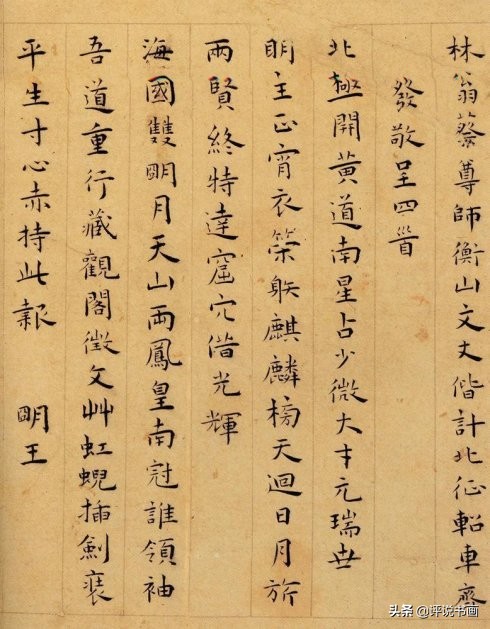 林翁蔡尊師衡山文丈偕計北征軺車齊
發敬呈四首
北極開黃道南星占少微大才元瑞世
明主正宵衣策射麒麟榜天迴日月旂
兩賢終特達窟穴借光輝
海國雙明月天山兩鳳皇南冠誰領袖
吾道重行藏觀閣徵文艸虹蜺插劍裝
平生寸心赤持此報 明王
头条 @评说书画